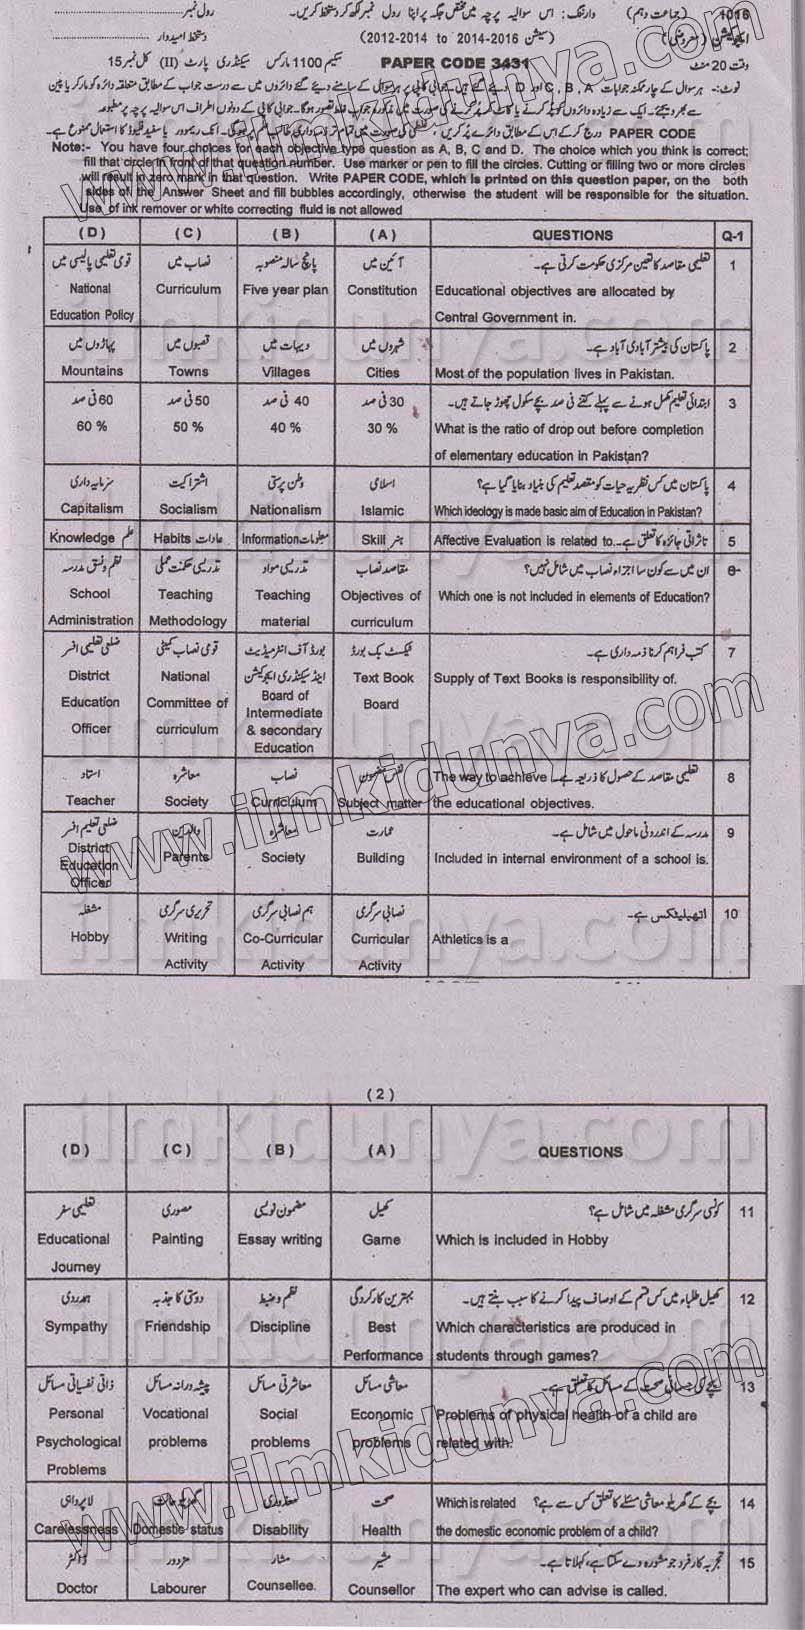 1016 (جماعت دہم) وارننگ: اس سوالیہ پرچہ میں مختص جگہ پر اپنا رول نمبر لکھ کر دستخط کریں۔ رول نمبر
ایجوکیشن (معروضی) (سیشن 2014-2016 to 2012-2014) دستخط امیدوار
وقت 20 منٹ PAPER CODE 3431 سکیم 1100 مارکس سیکنڈری پارٹ (II) کل نمبر 15
نوٹ:- ہر سوال کے چار ممکنہ جوابات A , B , C اور D دیئے گئے ہیں۔ جوابی کاپی پر ہر سوال کے سامنے دیئے گئے دائروں میں سے درست جواب کے مطابق متعلقہ دائرہ کو مارکر یا پین
سے بھر دیجئے۔ ایک سے زیادہ دائروں کو پُر کرنے یا کاٹ کر پُر کرنے کی صورت میں مذکورہ جواب غلط تصور ہوگا۔ جوابی کاپی کے دونوں اطراف اس سوالیہ پرچہ پر مطبوعہ
PAPER CODE درج کر کے اس کے مطابق دائرے پُر کریں، صورت میں تمام تر ذمہ داری طالب علم پر ہوگی۔ انک ریموور یا سفید فلیوڈ کا استعمال ممنوع ہے۔
Note:- You have four choices for each objective type question as A, B, C and D. The choice which you think is correct;
fill that circle in front of that question number. Use marker or pen to fill the circles. Cutting or filling two or more circles
will result in zero mark in that question. Write PAPER CODE, which is printed on this question paper, on the both
sides of the Answer Sheet and fill bubbles accordingly, otherwise the student will be responsible for the situation.
Use of ink remover or white correcting fluid is not allowed
(D) (C) (B) (A) QUESTIONS Q-1
قومی تعلیمی پالیسی میں نصاب میں پانچ سالہ منصوبہ آئین میں تعلیمی مقاصد کا تعین مرکزی حکومت کرتی ہے۔ 1
National Curriculum Five year plan Constitution Educational objectives are allocated by
Education Policy Central Government in.
پہاڑوں میں قصبوں میں دیہات میں شہروں میں پاکستان کی بیشتر آبادی آباد ہے۔ 2
Mountains Towns Villages Cities Most of the population lives in Pakistan.
60 فی صد 50 فی صد 40 فی صد 30 فی صد ابتدائی تعلیم مکمل ہونے سے پہلے کتنے فی صد بچے سکول چھوڑ جاتے ہیں۔ 3
60 % 50 % 40 % 30 % What is the ratio of drop out before completion
of elementary education in Pakistan?
سرمایہ داری اشتراکیت وطن پرستی اسلامی پاکستان میں کس نظریہ حیات کو مقصد تعلیم کی بنیاد بنایا گیا ہے؟ 4
Capitalism Socialism Nationalism Islamic Which ideology is made basic aim of Education in Pakistan?
Knowledge علم Habits عادات Information معلومات Skill ہنر Affective Evaluation is related to. تاثراتی جائزہ کا تعلق ہے۔ 5
نظم و نسق مدرسہ تدریسی حکمت عملی تدریسی مواد مقاصد نصاب ان میں سے کون سا اجزاء نصاب میں شامل نہیں؟ 6
School Teaching Teaching Objectives of Which one is not included in elements of Education?
Administration Methodology material curriculum
ضلعی تعلیمی افسر قومی نصاب کمیٹی بورڈ آف انٹرمیڈیٹ ٹیکسٹ بک بورڈ کتب فراہم کرنا ذمہ داری ہے۔ 7
District National اینڈ سیکنڈری ایجوکیشن Text Book Supply of Text Books is responsibility of.
Education Committee of Board of Board
Officer curriculum Intermediate
& secondary
Education
استاد معاشرہ نصاب نفس مضمون The way to achieve تعلیمی مقاصد کے حصول کا ذریعہ ہے۔ 8
Teacher Society Curriculum Subject matter the educational objectives.
ضلعی تعلیم افسر والدین معاشرہ عمارت مدرسہ کے اندرونی ماحول میں شامل ہے۔ 9
District Parents Society Building Included in internal environment of a school is.
Education
Officer
مشغلہ تحریری سرگرمی ہم نصابی سرگرمی نصابی سرگرمی اتھلیٹکس ہے۔ 10
Hobby Writing Co-Curricular Curricular Athletics is a
Activity Activity Activity
(2)
(D) (C) (B) (A) QUESTIONS
تعلیمی سفر مصوری مضمون نویسی کھیل کونسی سرگرمی مشغلہ میں شامل ہے؟ 11
Educational Painting Essay writing Game Which is included in Hobby
Journey
ہمدردی دوستی کا جذبہ نظم و ضبط بہترین کارکردگی کھیل طلباء میں کس قسم کے اوصاف پیدا کرنے کا سبب بنتے ہیں۔ 12
Sympathy Friendship Discipline Best Which characteristics are produced in
Performance students through games?
ذاتی نفسیاتی مسائل پیشہ ورانہ مسائل معاشرتی مسائل معاشی مسائل بچے کی جسمانی صحت کے مسائل کا تعلق ہے۔ 13
Personal Vocational Social Economic Problems of physical health of a child are
Psychological problems problems problems related with.
Problems
لاپرواہی گھریلو حالت معذوری صحت Which is related بچے کے گھریلو معاشی مسئلے کا تعلق کس سے ہے؟ 14
Carelessness Domestic status Disability Health the domestic economic problem of a child?
ڈاکٹر مزدور مشار مشیر تجربہ کار فرد جو مشورہ دے سکتا ہے، کہلاتا ہے۔ 15
Doctor Labourer Counsellee. Counsellor The expert who can advise is called.
www.ilmkidunya.com
www.ilmkidunya.com
www.ilmkidunya.com
ilmkidunya.com
ilmkidunya.com
ilmkidunya.com
ilmkidunya.com
ilmkidunya.com
ilmkidunya.com